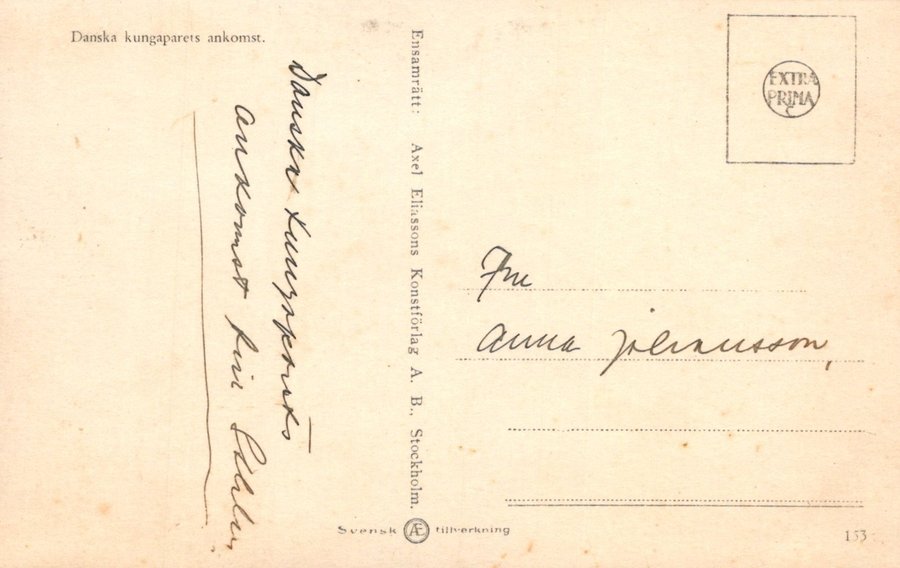 Danska kungaparets ankomst.
Danska kungaparets
ankomst till
Ensamrätt: Axel Eliassons Konstförlag A. B., Stockholm.
EXTRA
PRIMA
Fru
Anna Johansson,
Svensk Æ tillverkning
153